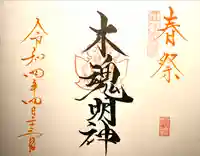 春祭
木魂明神
令和四年四月二十三日